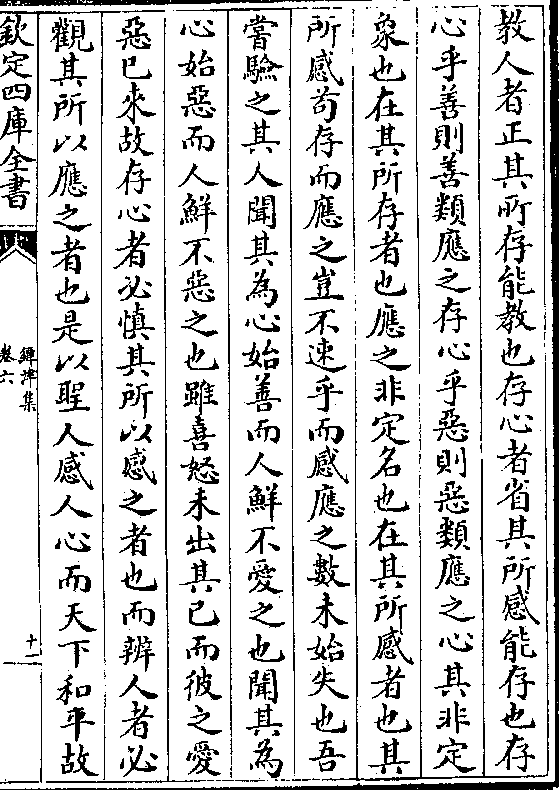 教人者正其所存能教也存心者省其所感能存也存
心乎善則善類應之存心乎惡則惡類應之心其非定
象也在其所存者也應之非定名也在其所感者也其
所感苟存而應之豈不速乎而感應之數未始失也吾
嘗驗之其人聞其為心始善而人鮮不愛之也聞其為
心始惡而人鮮不惡之也雖喜怒未出其已而彼之愛
惡已來故存心者必慎其所以感之者也而辨人者必
觀其所以應之者也是以聖人感人心而天下和平故
欽定四庫全書
鐔津集
卷六
十一